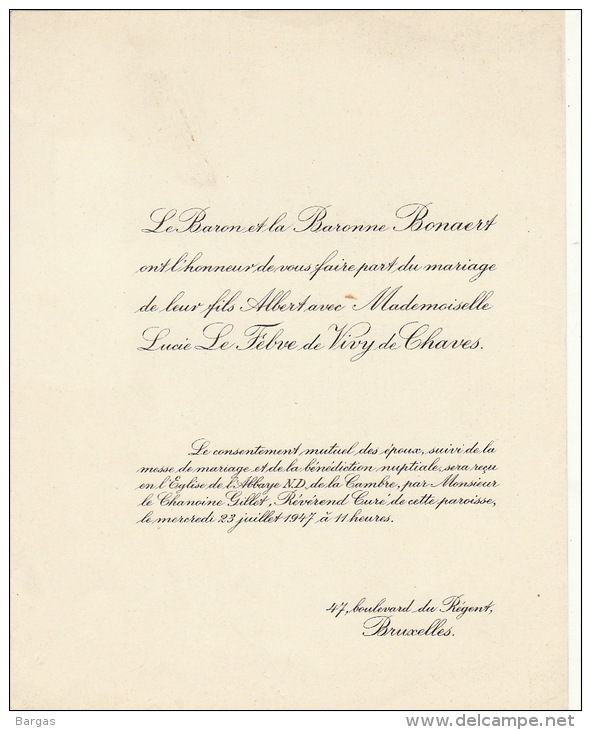 Le Baron et la Baronne Bonaert
ont l'honneur de vous faire part du mariage
de leur fils Albert avec Mademoiselle
Lucie Le Fèbve de Vivy de Chaves.
Le consentement mutuel des époux, suivi de la
messe de mariage et de la bénédiction nuptiale, sera reçu
en l'Eglise de l'Abbaye N.D. de la Cambre, par Monsieur
le Chanoine Gillet, Révérend Curé de cette paroisse,
le mercredi 23 juillet 1947 à 11 heures.
47, boulevard du Régent,
Bruxelles.
Bargas
delcampe.net